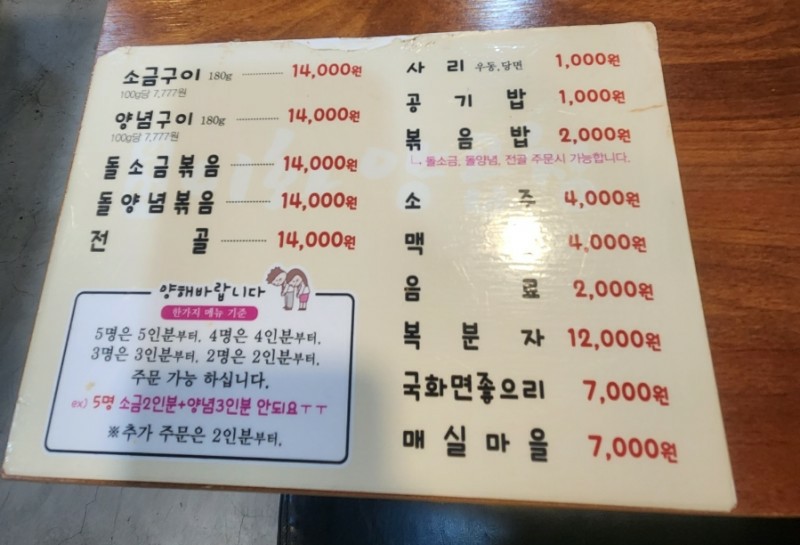 소금구이 180g 14,000원
100g당 7,777원
양념구이 180g 14,000원
100g당 7,777원
돌소금볶음 14,000원
돌양념볶음 14,000원
전골 14,000원
양해바랍니다
한가지 메뉴 기준
5명은 5인분부터, 4명은 4인분부터,
3명은 3인분부터, 2명은 2인분부터,
주문 가능 하십니다.
ex) 5명 소금2인분+양념3인분 안되요ㅜㅜ
※추가 주문은 2인분부터,
사리 우동,당면 1,000원
공기밥 1,000원
볶음밥 2,000원
ㄴ, 돌소금, 돌양념, 전골 주문시 가능합니다.
소주 4,000원
맥 4,000원
음료 2,000원
복분자 12,000원
국화면좋으리 7,000원
매실마을 7,000원